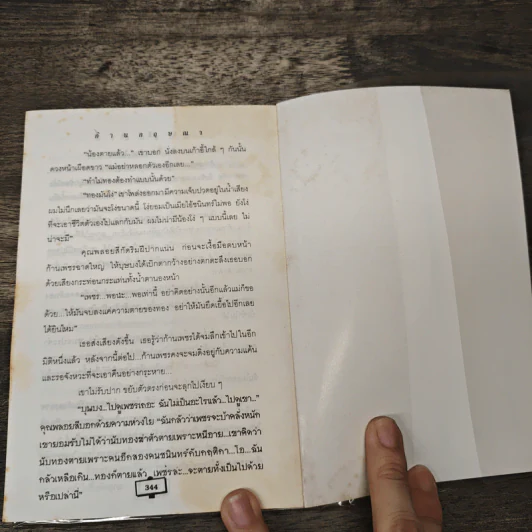 ล า น อ สู ร ผ า
"น้องตายแล้ว..." เขาบอก นั่งลงบนเก้าอี้ใกล้ ๆ กันนั้น
ดวงหน้าเผือดขาว "แม่อย่าหลอกตัวเองอีกเลย..."
"ทำไมทองต้องทำแบบนั้นด้วย"
"ทองมันโง่" เขาโพล่งออกมามีความเจ็บปวดอยู่ในน้ำเสียง
ผมไม่นึกเลยว่ามันจะโง่ขนาดนี้ โง่ยอมเป็นเมียไอ้ชนินทร์ไม่พอ ยังโง่
ที่จะเอาชีวิตตัวเองไปแลกกับมัน ผมไม่น่ามีน้องโง่ ๆ แบบนี้เลย ไม่
น่าจะมี"
คุณพลอยสีกัดริมฝีปากแน่น ก่อนจะเอื้อมมือตบหน้า
ก้านเพชรฉาดใหญ่ ให้บุษบงได้เบิกตากว้างอย่างตกตะลึงเธอบอก
ด้วยเสียงกระท่อนกระแท่นทั้งน้ำตานองหน้า
"เพชร...พอนะ...พอเท่านี้ อย่าคิดอย่างนั้นอีกแล้วแม่ก็ขอ
ด้วย...ให้มันจบลงแค่ความตายของทอง อย่าให้มันยืดเยื้อไปอีกเลย
ได้ยินไหม"
เธอส่งเสียงดังขึ้น เธอรู้ว่าก้านเพชรได้จมลึกเข้าไปในอีก
มิติหนึ่งแล้ว หลังจากนี้ต่อไป...ก้านเพชรคงจะจมดิ่งอยู่กับความแค้น
และรอจังหวะที่จะเอาคืนอย่างกระหาย...
เขาไม่รับปาก ขยับตัวตรงก่อนจะลุกไปเงียบ ๆ
"บุษบง...ไปดูเพชรเถอะ ฉันไม่เป็นอะไรแล้ว...ไปดูเขา..."
คุณพลอยสีบอกด้วยความห่วงใย "ฉันกลัวว่าเพชรจะบ้าคลั่งหนัก
เขายอมรับไม่ได้ว่านับทองฆ่าตัวตายเพราะหนีอาย...เขาคิดว่า
นับทองตายเพราะคนอีกสองคนชนินทร์กับกฤติกา...โอ...ฉัน
กลัวเหลือเกิน...ทองก็ตายแล้ว เพชรล่ะ...จะตายทั้งเป็นไปด้วย
หรือเปล่านี่"
344